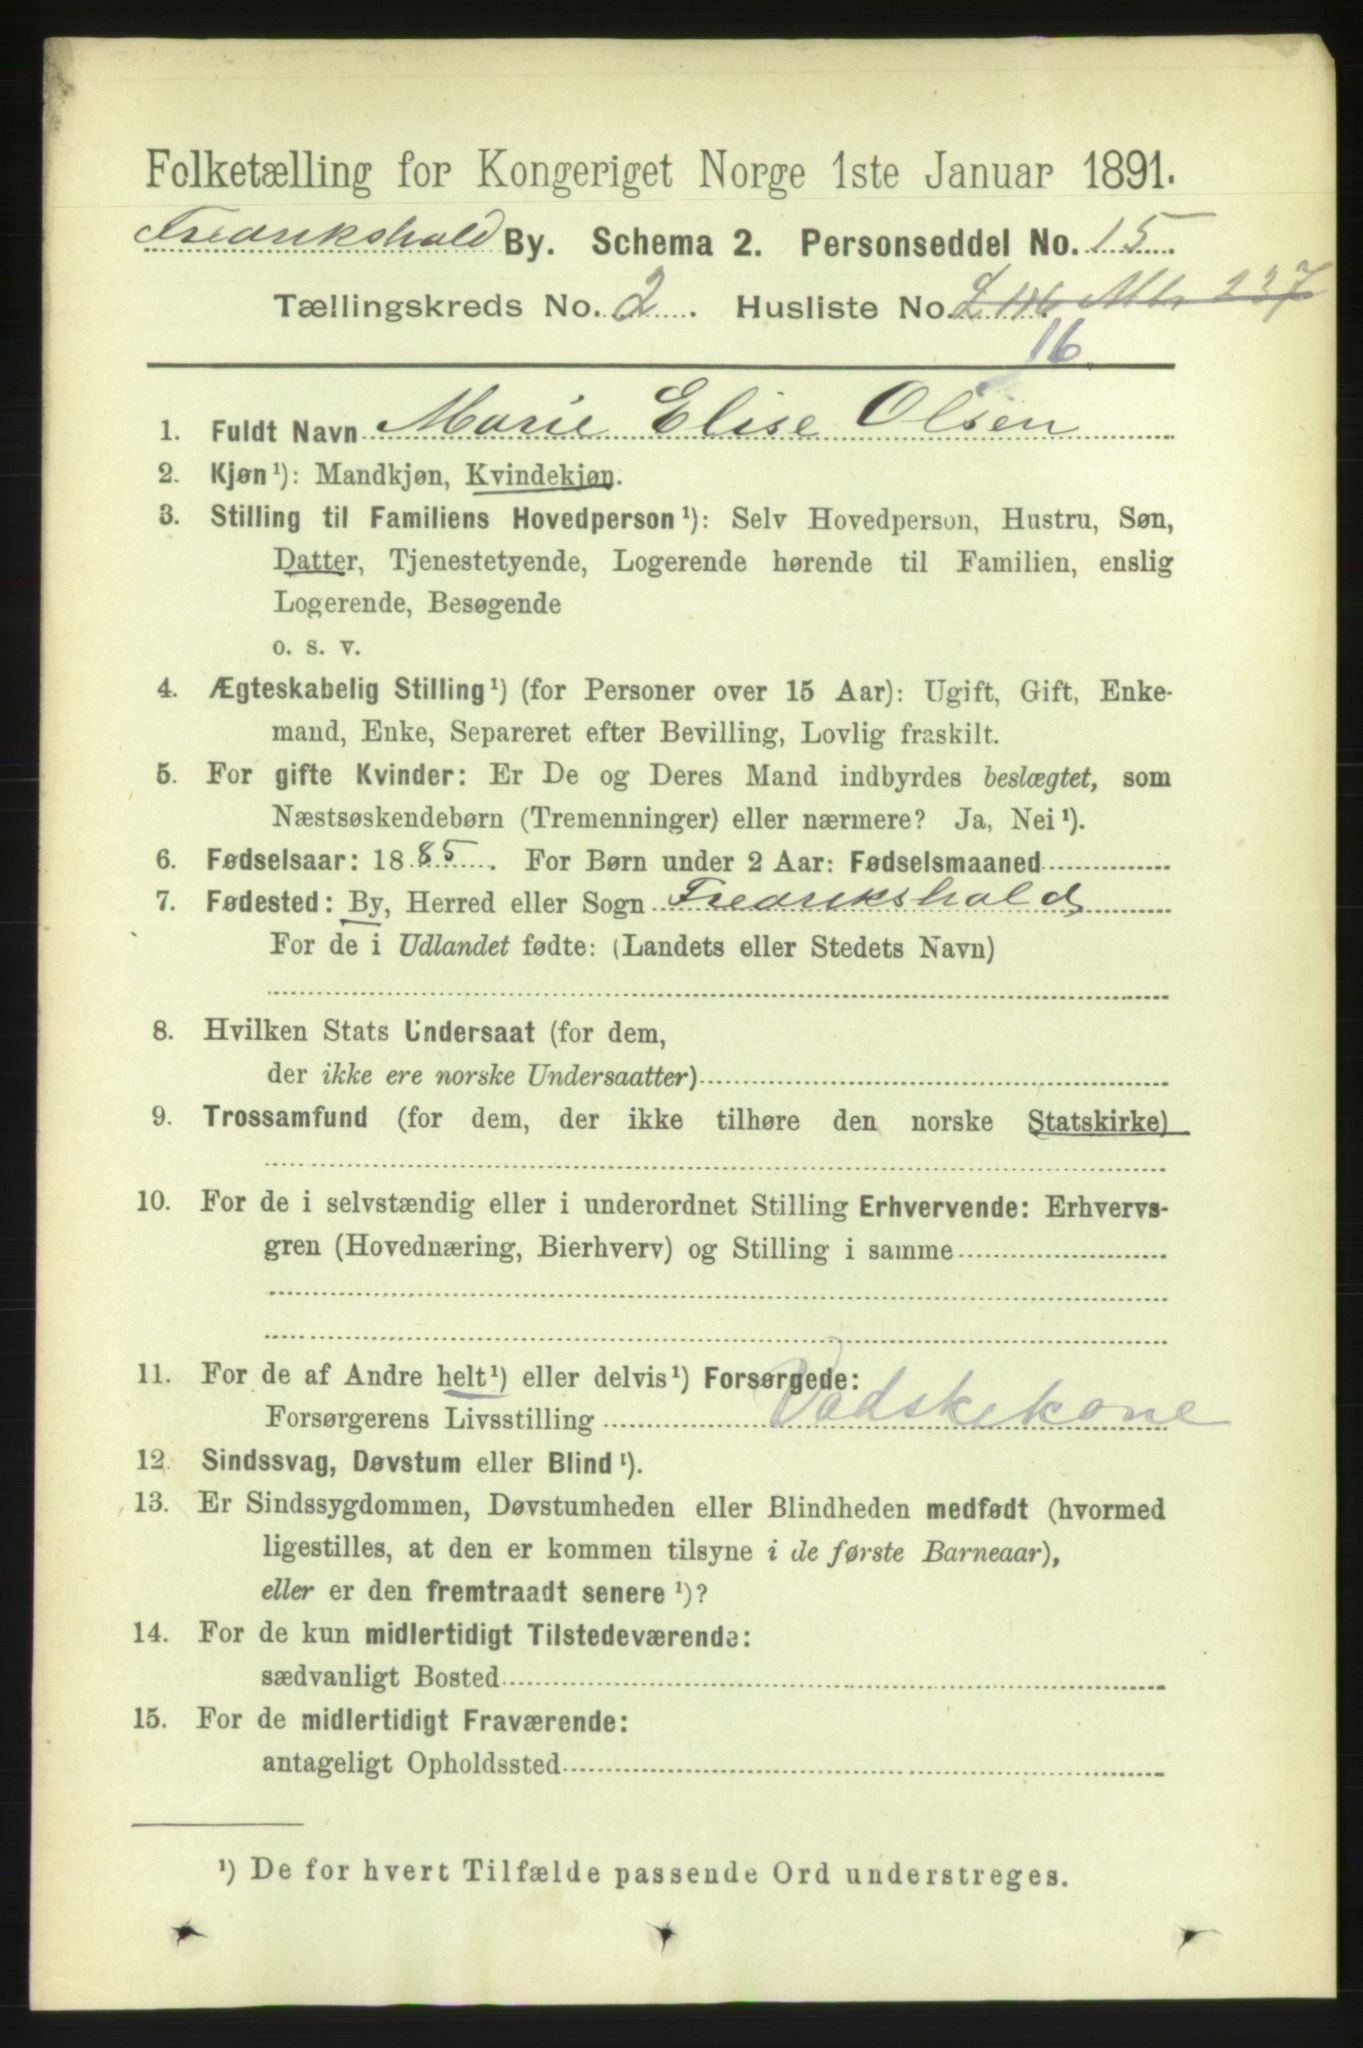 Folketælling for Kongeriget Norge 1ste Januar 1891.
Fredrikshald By. Schema 2. Personseddel No. 15
Tællingskreds No. 2. Husliste No.
16
1. Fuldt Navn Marie Elise Olsen
2. Kjøn¹): Mandkjøn, Kvindekjøn.
3. Stilling til Familiens Hovedperson¹): Selv Hovedperson, Hustru, Søn,
Datter, Tjenestetyende, Logerende hørende til Familien, enslig
Logerende, Besøgende
o. s. v.
4. Ægteskabelig Stilling¹) (for Personer over 15 Aar): Ugift, Gift, Enke-
mand, Enke, Separeret efter Bevilling, Lovlig fraskilt.
5. For gifte Kvinder: Er De og Deres Mand indbyrdes beslægtet, som
Næstsøskendebørn (Tremenninger) eller nærmere? Ja, Nei¹).
6. Fødselsaar: 1885. For Børn under 2 Aar: Fødselsmaaned
7. Fødested: By, Herred eller Sogn Fredrikshald
For de i Udlandet fødte: (Landets eller Stedets Navn)
8. Hvilken Stats Undersaat (for dem,
der ikke ere norske Undersaatter)
9. Trossamfund (for dem, der ikke tilhøre den norske Statskirke)
10. For de i selvstændig eller i underordnet Stilling Erhvervende: Erhvervs-
gren (Hovednæring, Bierhverv) og Stilling i samme
11. For de af Andre helt¹) eller delvis¹) Forsørgede:
Forsørgerens Livsstilling Vadskekone
12. Sindssvag, Døvstum eller Blind¹).
13. Er Sindssygdommen, Døvstumheden eller Blindheden medfødt (hvormed
ligestilles, at den er kommen tilsyne i de første Barneaar),
eller er den fremtraadt senere¹)?
14. For de kun midlertidigt Tilstedeværende:
sædvanligt Bosted
15. For de midlertidigt Fraværende:
antageligt Opholdssted
¹) De for hvert Tilfælde passende Ord understreges.